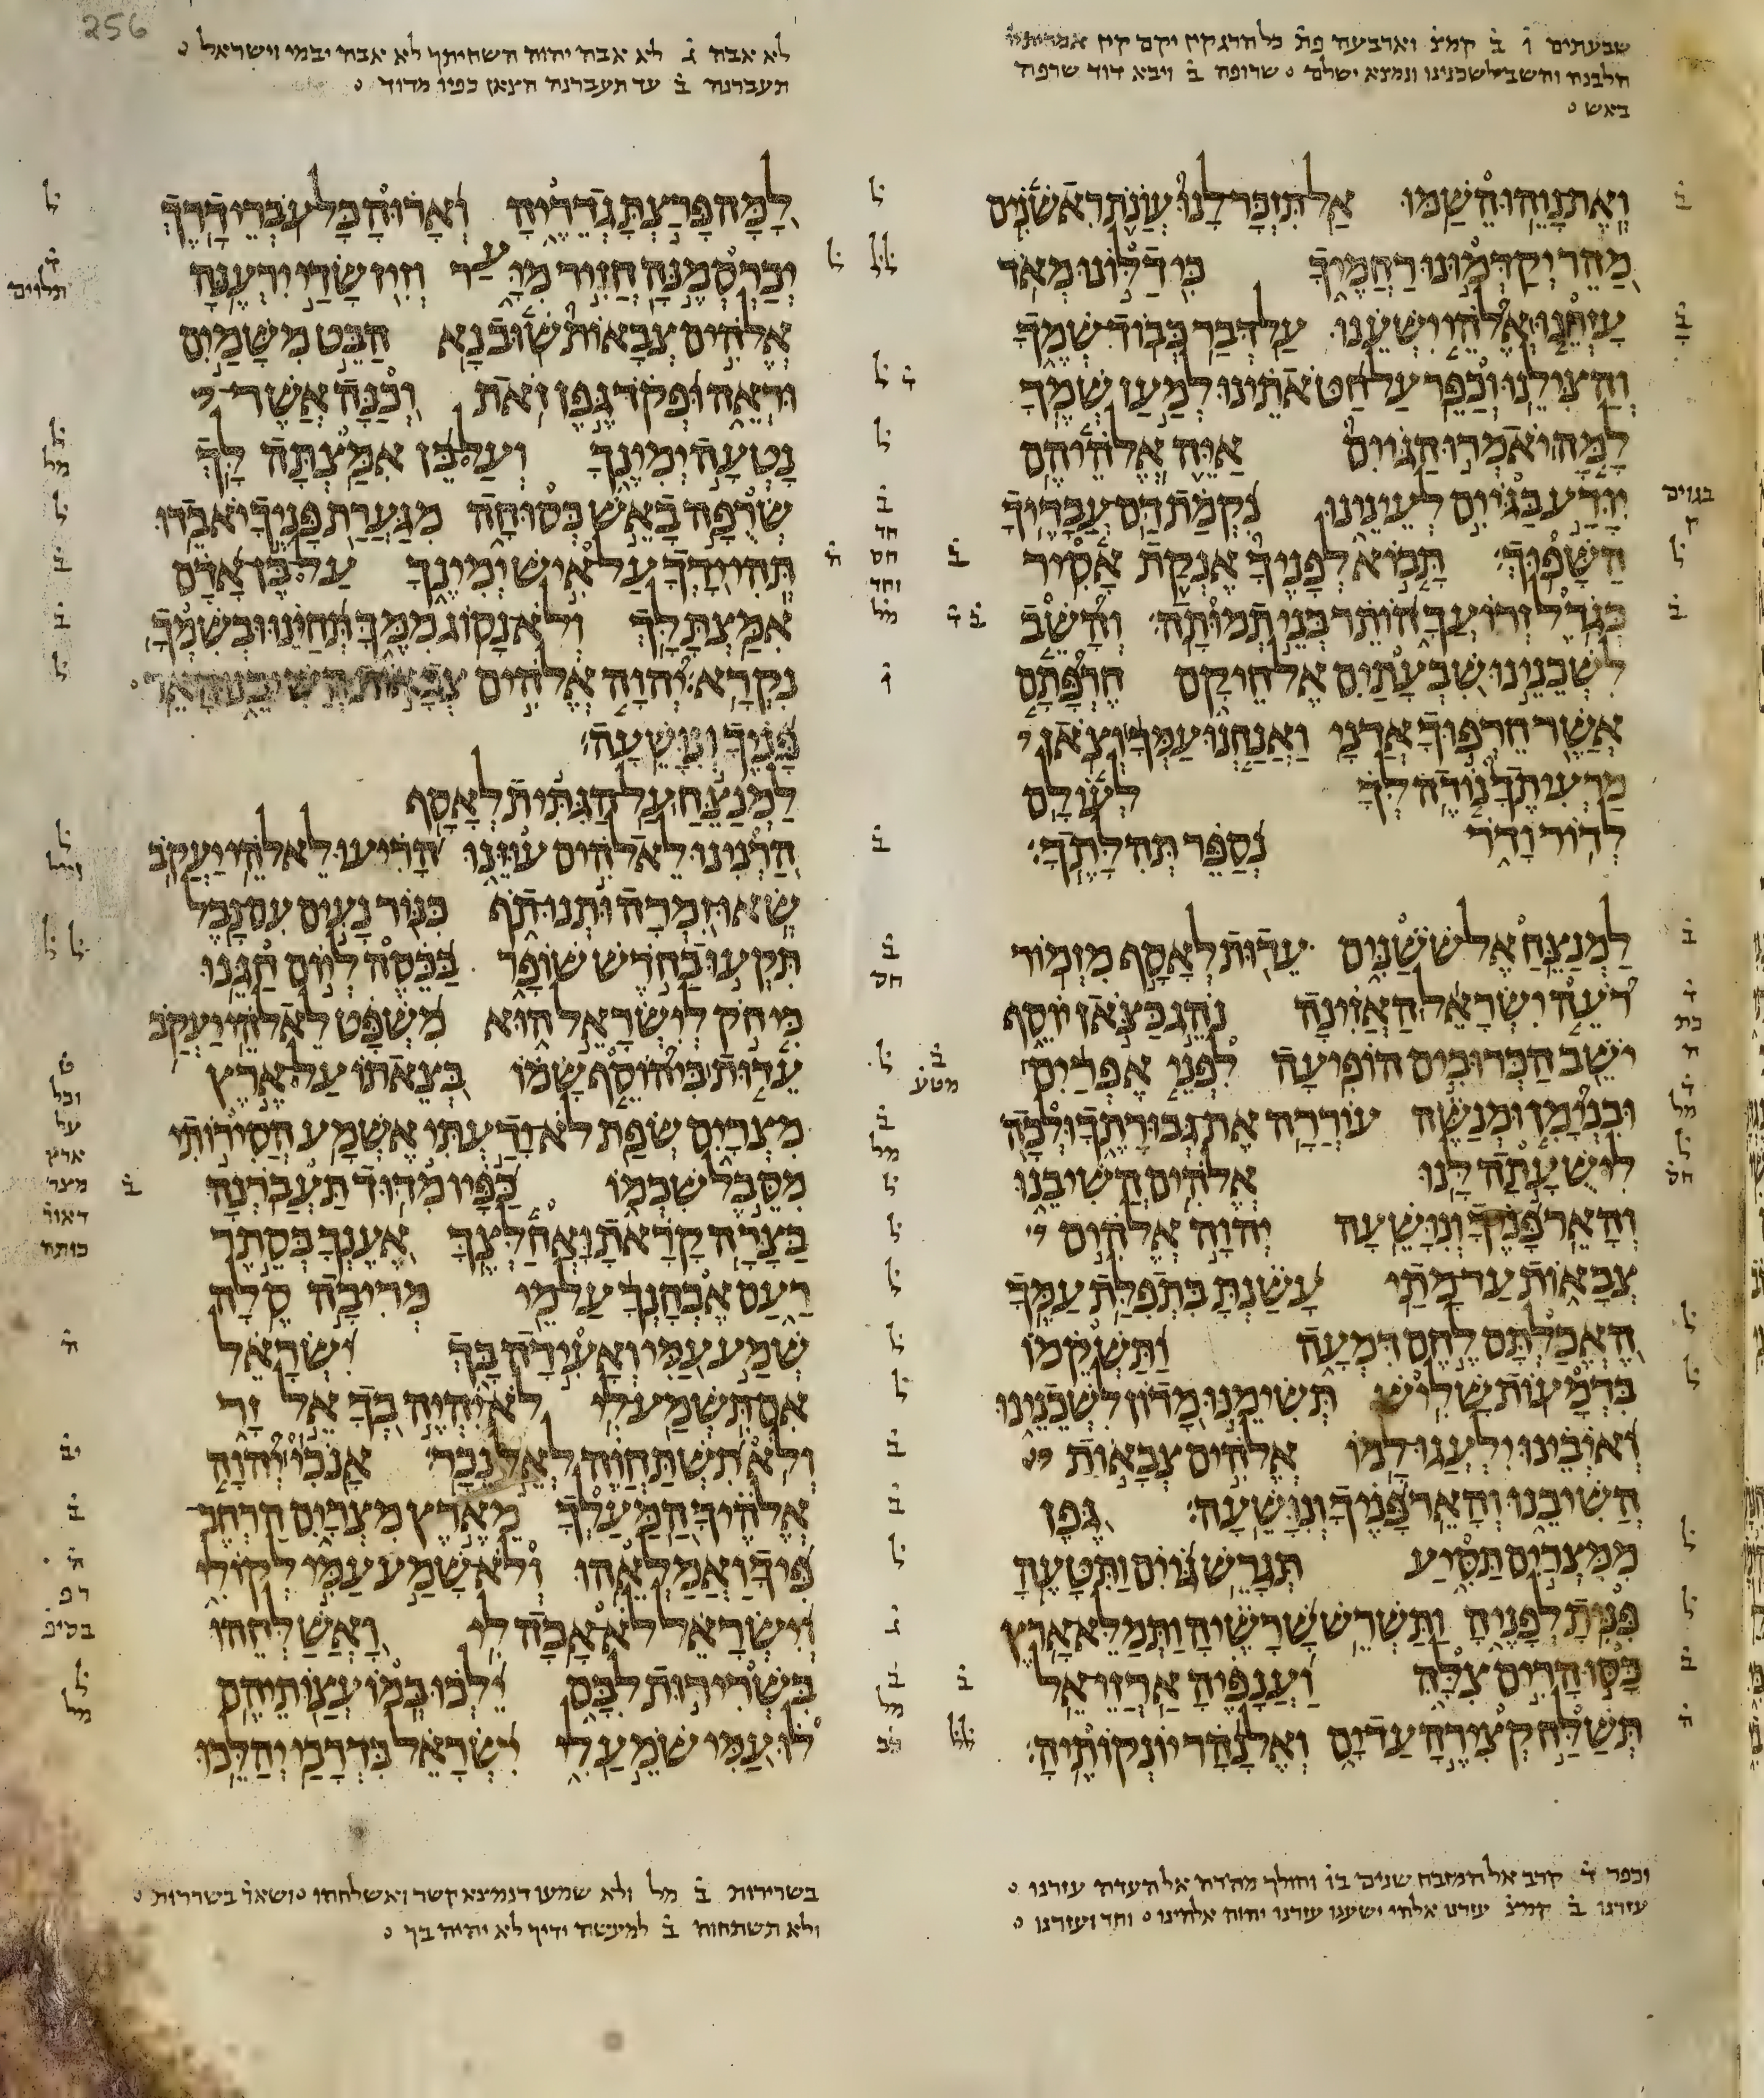 256
שבעתים ו ב קמצ וארבעה פת כל הרג קין יקם קין
חלבנה והשב לשכנינו ונמצא ישלם שרופה ב ויבא דוד שרפה
באש
לא אבה ג לא אבה יהוה השחיתך לא אבה יבמי וישראל
תעברנה ב עד תעברנה הצאן כפיו מדוד
ואת נוהו השמו אל תזכר לנו עונת ראשנים
מהר יקדמונו רחמיך כי דלונו מאד
עזרנו אלהי ישענו על דבר כבוד שמך
והצילנו וכפר על חטאתינו למען שמך
למה יאמרו הגוים איה אלהיהם
יודע בגיים לעינינו נקמת דם עבדיך
השפוך תבוא לפניך אנקת אסיר
כגדל זרועך הותר בני תמותה והשב
לשכנינו שבעתים אל חיקם חרפתם
אשר חרפוך אדני ואנחנו עמך וצאן
מרעיתך נודה לך לעולם
לדור ודר נספר תהלתך
למנצח אל ששנים עדות לאסף מזמור
רעה ישראל האזינה נהג כצאן יוסף
ישב הכרובים הופיעה לפני אפרים
ובנימן ומנשה עוררה את גבורתך ולכה
לישעתה לנו אלהים השיבנו
והאר פניך ונושעה יהוה אלהים
צבאות עד מתי עשנת בתפלת עמך
האכלתם לחם דמעה ותשקמו
בדמעות שליש תשימנו מדון לשכנינו
ואיבינו ילעגו למו אלהים צבאות
השיבנו והאר פניך ונושעה גפן
ממצרים תסיע תגרש גוים ותטעה
פנית לפניה ותשרש שרשיה ותמלא ארץ
כסו הרים צלה וענפיה ארזי אל
תשלח קצירה עד ים ואל נהר יונקותיה
למה פרצת גדריה וארוה כל עברי דרך
יכרסמנה חזיר מיער וזיז שדי ירענה
אלהים צבאות שוב נא הבט משמים
וראה ופקד גפן זאת וכנה אשר
נטעה ימינך ועל בן אמצתה לך
שרפה באש כסוחה מגערת פניך יאבדו
תהי ידך על איש ימינך על בן אדם
אמצת לך ולא נסוג ממך תחינו ובשמך
נקרא יהוה אלהים צבאות השיבנו האר
פניך ונושעה
למנצח על הגתית לאסף
הרנינו לאלהים עוזנו הריעו לאלהי יעקב
שאו זמרה ותנו תף כנור נעים עם נבל
תקעו בחדש שופר בכסה ליום חגנו
כי חק לישראל הוא משפט לאלהי יעקב
עדות ביהוסף שמו בצאתו על ארץ
מצרים שפת לא ידעתי אשמע הסירותי
מסבל שכמו כפיו מדוד תעברנה
בצרה קראת ואחלצך אענך בסתר
רעם אבחנך על מי מריבה סלה
שמע עמי ואעידה בך ישראל
אם תשמע לי לא יהיה בך אל זר
ולא תשתחוה לאל נכר אנכי יהוה
אלהיך המעלך מארץ מצרים הרחב
פיך ואמלאהו ולא שמע עמי לקולי
וישראל לא אבה לי ואשלחהו
בשרירות לבם ילכו במועצותיהם
לו עמי שמע לי ישראל בדרכי יהלכו
וכפר ד קרב אל המזבח שנים בו והולך מהרה אל העדה עזרנו
עזרנו ב קמצ עזרנו אלהי ישענו עזרנו יהוה אלהינו וחד ועזרנו
בשרירות ב מל ולא שמעו דנמצא קשר ואשלחהו ושאר בשררות
ולא תשתחוה ב למעשה ידיך לא יהיה בך